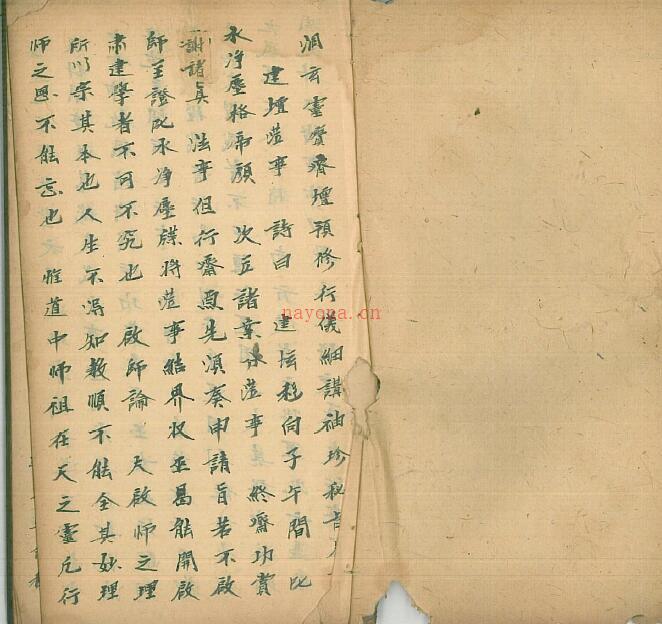 洞玄靈寶齋壇預修行儀細講袖珍秘旨
建壇蒞事 詩曰 建坛移向子午間
水净壓格帝顏 次立諸案蒞事 終齋功賞
謝諸真 法事但行齋 先湏奏申請旨若不啟
師至證 水净壓牒將蒞事結界収巫曷能開啟
肃建學者不可不究也 啟師論 夫啟師之理
所以宗其本也人生不得知教順不能全其妙理
师之恩不能忘也 惟道中师祖在天之靈凡行
nayona.cn